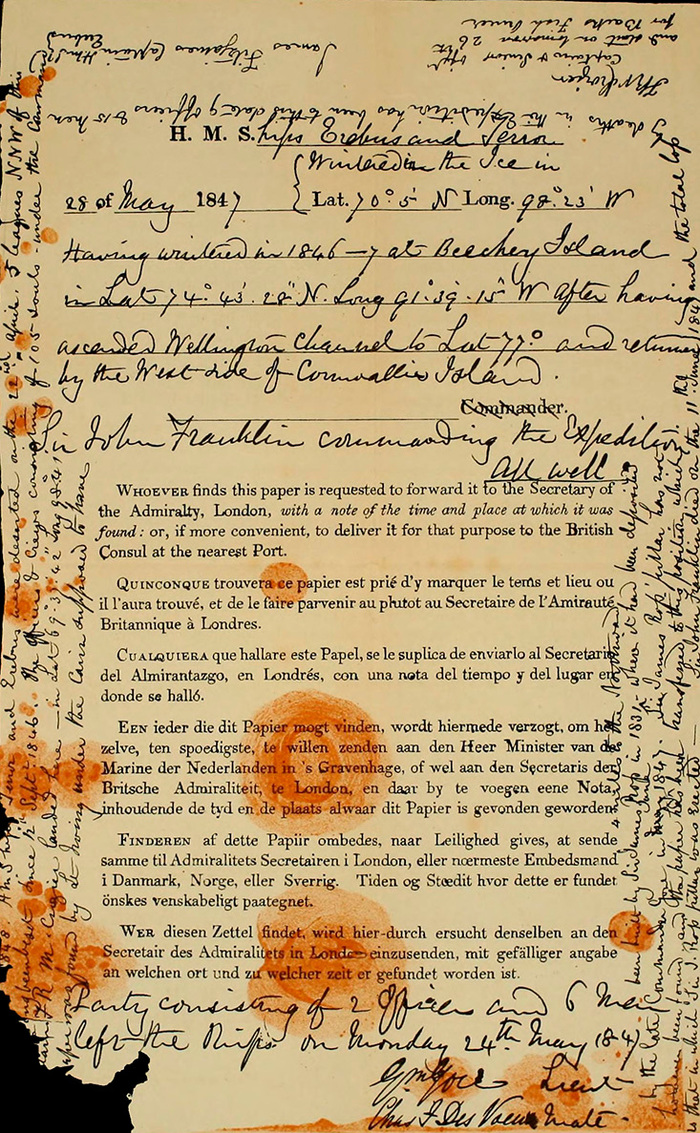 H. M. S.hips Erebus and Terror
Wintered in the Ice in
28 of May 1847 Lat. 70° 5' N Long. 98° 23' W
Having wintered in 1846-7 at Beechey Island
in Lat 74° 43' 28" N. Long 91° 39' 15" W After having
ascended Wellington Channel to Lat 77° and returned
by the West side of Cornwallis Island.
Commander.
Sir John Franklin commanding the Expedition
All well
WHOEVER finds this paper is requested to forward it to the Secretary of
the Admiralty, London, with a note of the time and place at which it was
found: or, if more convenient, to deliver it for that purpose to the British
Consul at the nearest Port.
QUINCONQUE trouvera ce papier est prié d'y marquer le tems et lieu ou
il l'aura trouvé, et de le faire parvenir au plutot au Secretaire de l'Amirauté
Britannique à Londres.
CUALQUIERA que hallare este Papel, se le suplica de enviarlo al Secretario
del Almirantazgo, en Londrés, con una nota del tiempo y del lugar en
donde se halló.
EEN ieder die dit Papier mogt vinden, wordt hiermede verzogt, om het
zelve, ten spoedigste, te willen zenden aan den Heer Minister van de
Marine der Nederlanden in 's Gravenhage, of wel aan den Secretaris den
Britsche Admiraliteit, te London, en daar by te voegen eene Nota,
inhoudende de tyd en de plaats alwaar dit Papier is gevonden geworden
FINDEREN af dette Papiir ombedes, naar Leilighed gives, at sende
samme til Admiralitets Secretairen i London, eller nœrmeste Embedsmand
i Danmark, Norge, eller Sverrig. Tiden og Stœdit hvor dette er fundet
önskes venskabeligt paategnet.
WER diesen Zettel findet, wird hier-durch ersucht denselben an den
Secretair des Admiralitets in London einzusenden, mit gefälliger angabe
an welchen ort und zu welcher zeit er gefundet worden ist.
Party consisting of 2 Officers and 6 Men
left the Ships on Monday 24th May 1847
Gm Gore Lieut
Chas F Des Voeux Mate.
1848 H M Ships Terror and Erebus were deserted on the 22nd April, 5 leagues NNW of this
having been beset since 12th Sept 1846. The Officers & Crews consisting of 105 souls under the Command
Captain F.R.M. Crozier landed here – in Lat 69° 37' 42" Long 98° 41'
paper was found by Lt Irving under the Cairn supposed to have
been built by Sir James Ross in 1831 where it had been deposited
4 miles to the Northward
by the late Commander Gore in June May 1847. Sir James Ross' pillar has not
however been found and the paper has been transferred to this position which
is that in which Sir J. Ross pillar was erected – Sir John Franklin died on the 11th June 1847 and the total loss
by deaths in the Expedition has been to this date 9 officers & 15 men
James Fitzjames Captain HMS Erebus
F R M Crozier
Captain & Senior Offr
and start on tomorrow 26th
for Backs Fish River